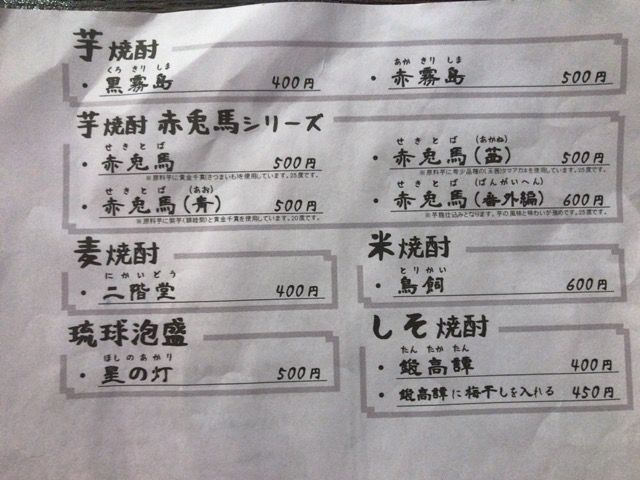 芋焼酎
くろ きり しま
・黒霧島 400円
あか きり しま
・赤霧島 500円
芋焼酎 赤兎馬シリーズ
せきとば
・赤兎馬 500円
※原料芋に黄金千貫(さつまいも)を使用しています。25度です。
せきとば (あかね)
・赤兎馬(茜) 500円
※原料芋に希少品種の(玉茜)タマアカネを使用しています。25度です。
せきとば (あお)
・赤兎馬(青) 500円
※原料芋に紫芋(頴娃紫)と黄金千貫を使用しています。20度です。
せきとば (ばんがいへん)
・赤兎馬(番外編) 600円
※芋麹仕込みとなります。芋の風味と味わいが強めです。25度です。
麦焼酎
にかいどう
・二階堂 400円
米焼酎
とりかい
・鳥飼 600円
琉球泡盛
ほしのあかり
・星の灯 500円
しそ焼酎
たん たか たん
・鍛高譚 400円
・鍛高譚に梅干しを入れる 450円